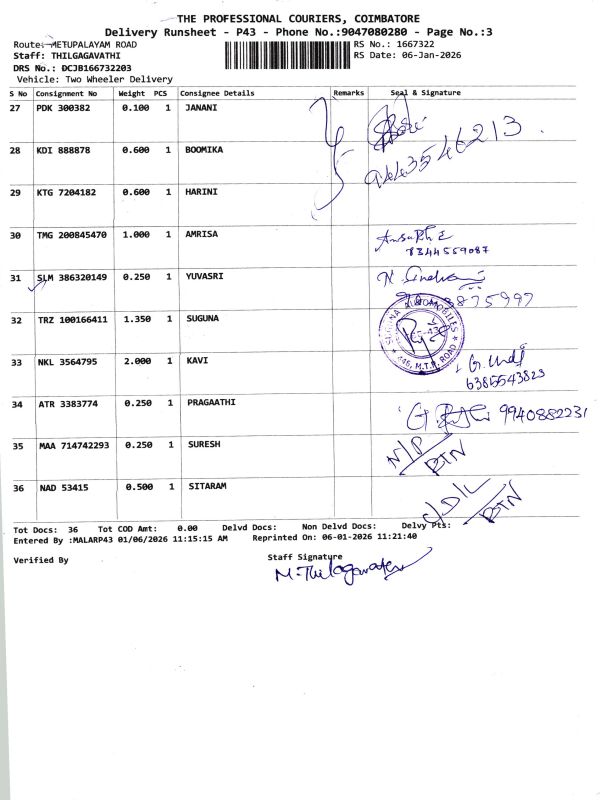 THE PROFESSIONAL COURIERS, COIMBATORE
Delivery Runsheet - P43 - Phone No.:9047080280 - Page No.:3
Route: METUPALAYAM ROAD RS No.: 1667322
Staff: THILGAGAVATHI RS Date: 06-Jan-2026
DRS No.: DCJB166732203
Vehicle: Two Wheeler Delivery
S No Consignment No Weight PCS Consignee Details Remarks Seal & Signature
27 PDK 300382 0.100 1 JANANI
28 KDI 888878 0.600 1 BOOMIKA
9443546213
29 KTG 7204182 0.600 1 HARINI
30 TMG 200845470 1.000 1 AMRISA
8344559087
31 SLM 386320149 0.250 1 YUVASRI
32 TRZ 100166411 1.350 1 SUGUNA
SUGUNA AUTOMOBILES
446, M.T.P. ROAD
33 NKL 3564795 2.000 1 KAVI
6385543823
34 ATR 3383774 0.250 1 PRAGAATHI
9940882231
35 MAA 714742293 0.250 1 SURESH N/P RTN
36 NAD 53415 0.500 1 SITARAM D/L RTN
Tot Docs: 36 Tot COD Amt: 0.00 Delvd Docs: Non Delvd Docs: Delvy Pts:
Entered By :MALARP43 01/06/2026 11:15:15 AM Reprinted On: 06-01-2026 11:21:40
Verified By Staff Signature
M. Thilagavathi